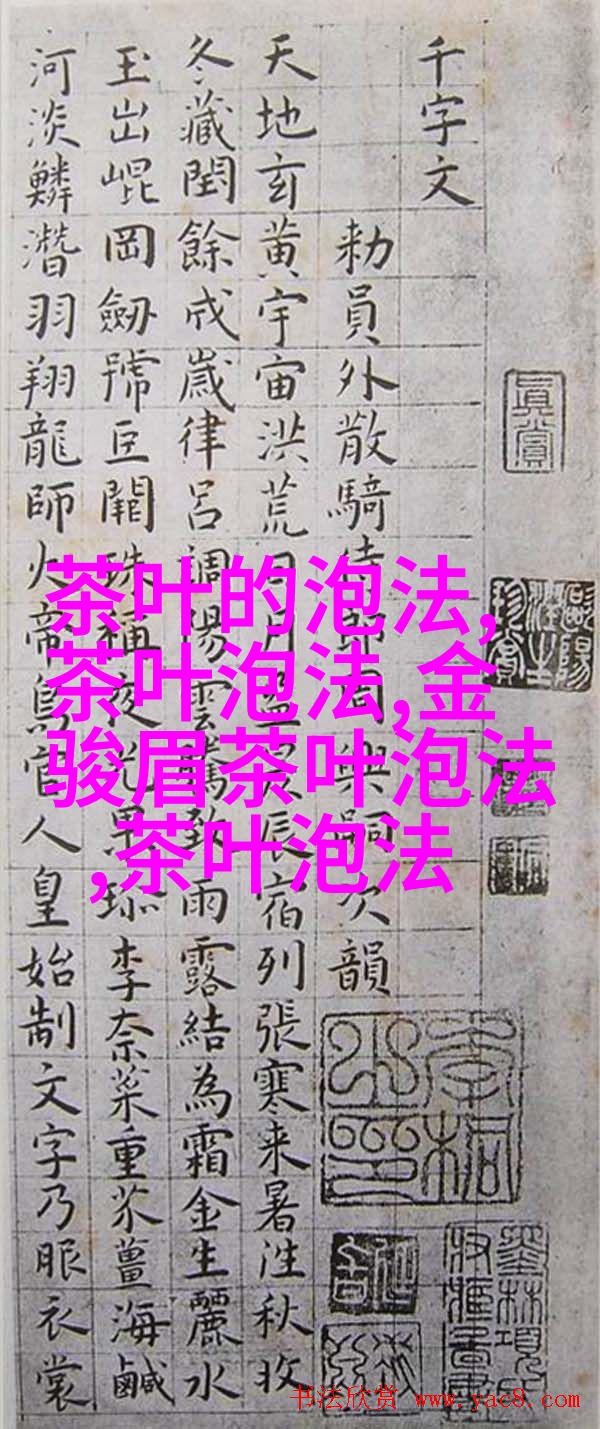 千字文
勑員外散騎侍郎周興嗣次韻
天地玄黄宇宙洪荒日月盈昃辰宿列張寒来暑往秋收
冬藏閏餘成歲律吕調陽雲騰致雨露結為霜金生麗水
玉出崐岡劒號巨闕珠稱夜光果珎李柰菜重芥薑海鹹
河淡鱗潛羽翔龍師火帝鳥官人皇始制文字乃服衣裳
眞賞
茶叶的泡法,
茶叶泡法,金
骏眉茶叶泡法
,茶叶泡法
书法欣赏 www.yac8.com